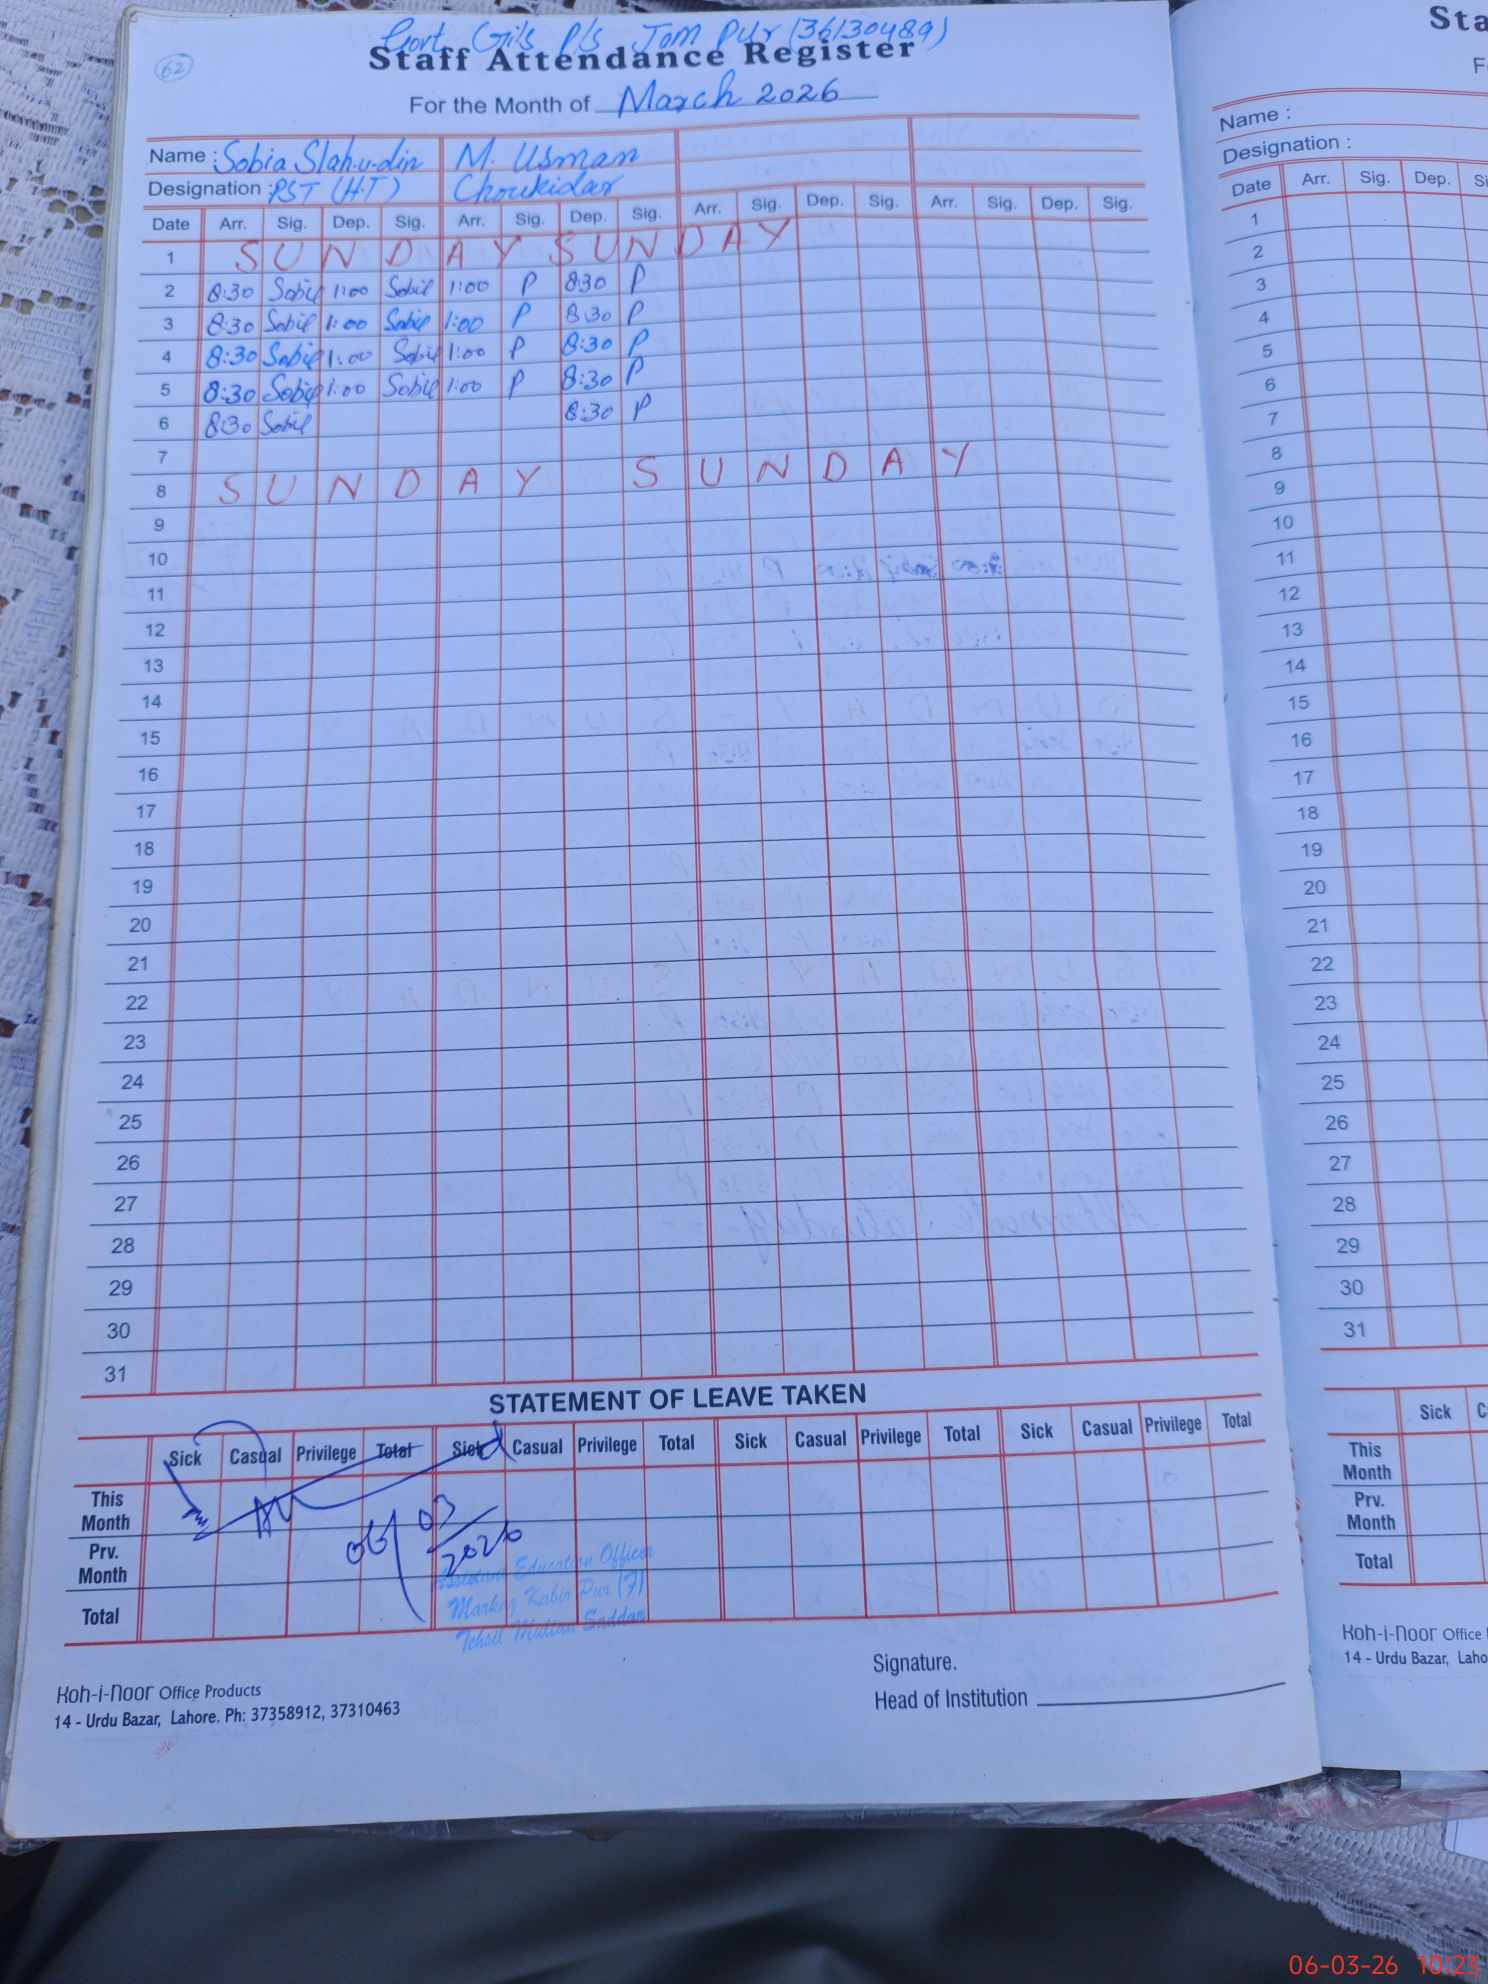 62
Govt Gils P/s Jom Pur (36130489)
Staff Attendance Register
For the Month of March 2026
Name : Sobia Slah-u-din M. Usman
Designation : PST (H.T) Choukidar
Date Arr. Sig. Dep. Sig. Arr. Sig. Dep. Sig. Arr. Sig. Dep. Sig. Arr. Sig. Dep. Sig.
1 S U N D A Y S U N D A Y
2 8:30 Sobil 1:00 Sobil 1:00 P 8:30 P
3 8:30 Sobil 1:00 Sobil 1:00 P 8:30 P
4 8:30 Sobil 1:00 Sobil 1:00 P 8:30 P
5 8:30 Sobil 1:00 Sobil 1:00 P 8:30 P
6 8:30 Sobil 8:30 P
7
8 S U N D A Y S U N D A Y
9
10
11
12
13
14
15
16
17
18
19
20
21
22
23
24
25
26
27
28
29
30
31
STATEMENT OF LEAVE TAKEN
Sick Casual Privilege Total Sick Casual Privilege Total Sick Casual Privilege Total Sick Casual Privilege Total
This Month
Prv. Month
Total
06/03/2026
Assistant Education Officer
Markiz Kabir Pur (F)
Tehsil Multan Saddar
Signature.
Head of Institution
Koh-i-Noor Office Products
14 - Urdu Bazar, Lahore. Ph: 37358912, 37310463
Sta
F
Name :
Designation :
Date Arr. Sig. Dep. Si
1
2
3
4
5
6
7
8
9
10
11
12
13
14
15
16
17
18
19
20
21
22
23
24
25
26
27
28
29
30
31
Sick C
This Month
Prv. Month
Total
Koh-i-Noor Office
14 - Urdu Bazar, Laho
06-03-26 10:23